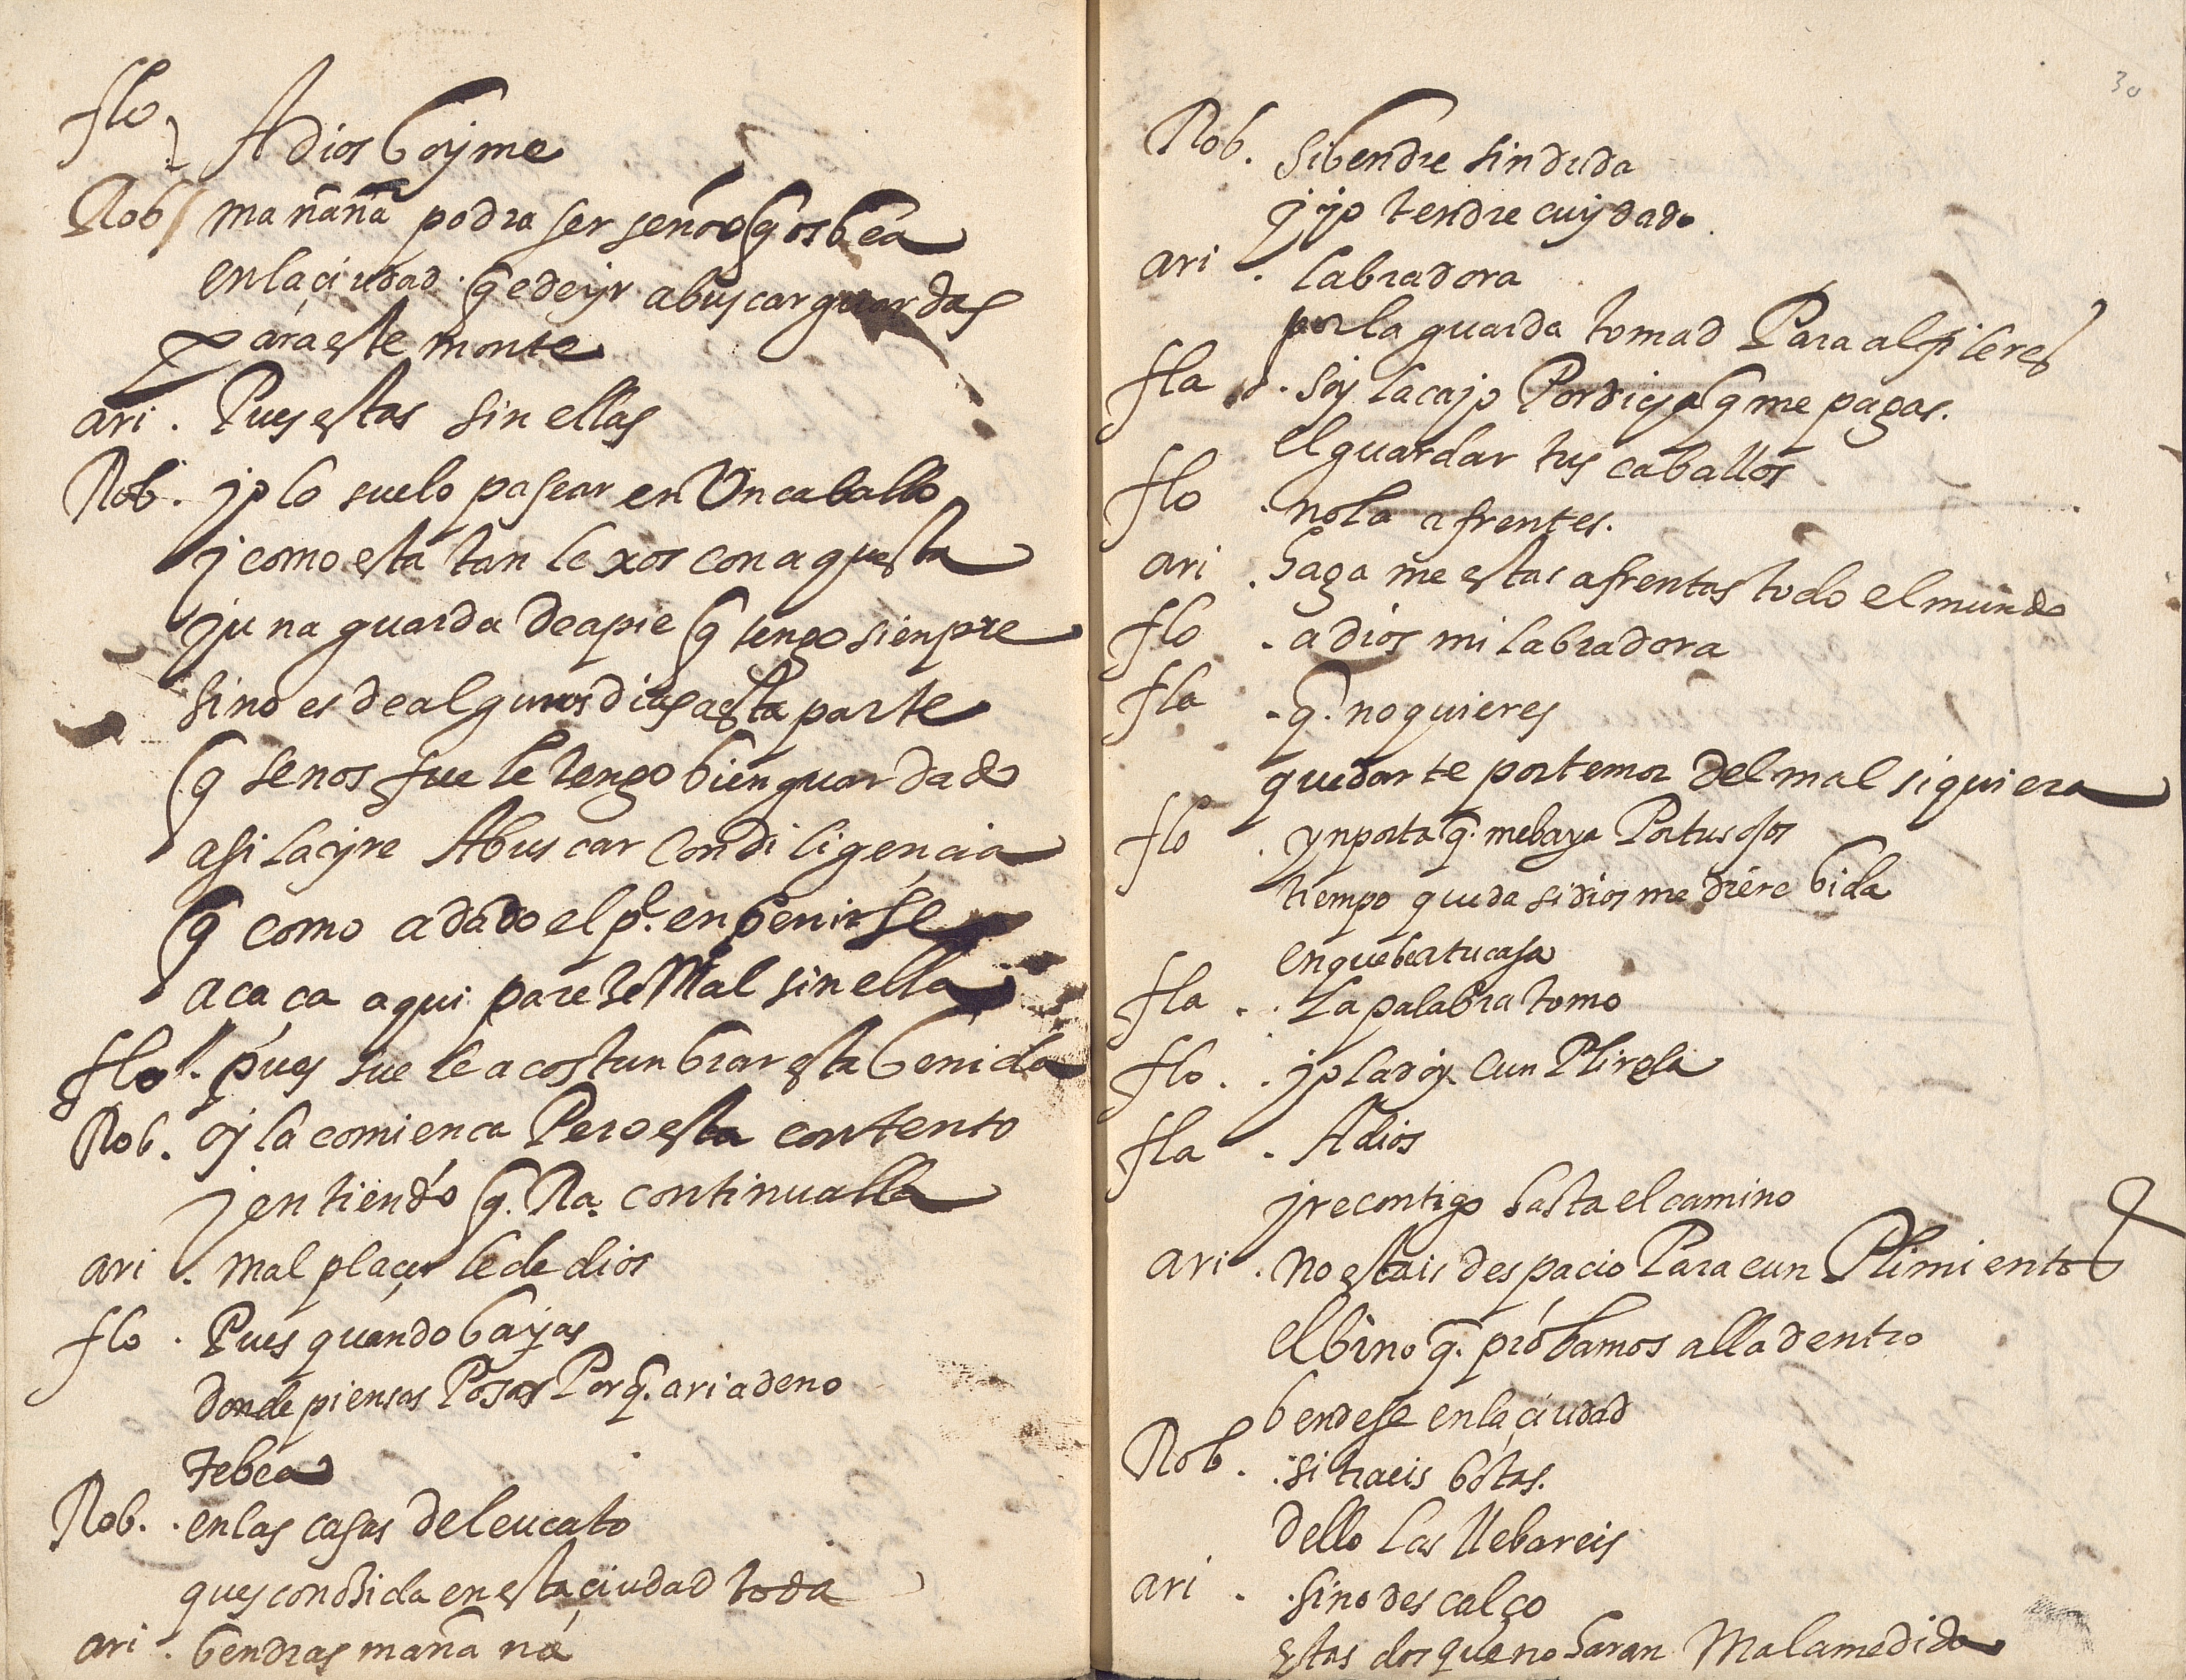 flo Adios boyme
Rob mañana podra ser señor q os bea
en la çiudad. q e de yr a buscar guardas
para este monte
ari . Pues estas sin ellas
Rob . yo lo suelo pasear en Un caballo
y como esta tan lexos con aquesta
y una guarda de a pie q tengo sienpre
sino es de algunos dias a esta parte
q se nos fue le tengo bien guardado
asi la yre A buscar Con diligençia
q como a dado el p.º en benirse
aca ca aqui parese Mal sin ella
flo . pues suele acostunbrar esta benida
Rob . oy la comienca Pero esta contento
y entiendo q. Ra. continualla
ari . mal plaçer le de dios
flo . Pues quando bayas
donde piensas Posar Porq. ariadeno
te bea
Rob . . en las casas de leucato
ques conosida en esta çiudad toda
ari . bendras mañana
30
Rob . si bendre sin duda
y yo tendre cuydado .
ari . labradora
por la guarda tomad Para alfileres
fla . soy lacayo Por dicha q me pagas .
el guardar tus caballos
flo . no la afrentes .
ari . haga me estas afrentas todo el mundo
flo . a dios mi labradora
fla . q. no quieres
quedarte por temor del mal siquiera
flo . ynporta q. me baya Por tus ojos
tiempo queda si dios me diere bida
en que bea tu casa
fla . . La palabra tomo
flo . . yo la doy Cun Plirela
fla . Adios
yre contigo hasta el camino
ari . no estais despacio Para cun Plimientos
el bino q. probamos alla dentro
bendese en la çiudad
Rob . . si traeis botas .
dello las llebareis
ari . . sino descalço
estas dos que no haran Mala medida